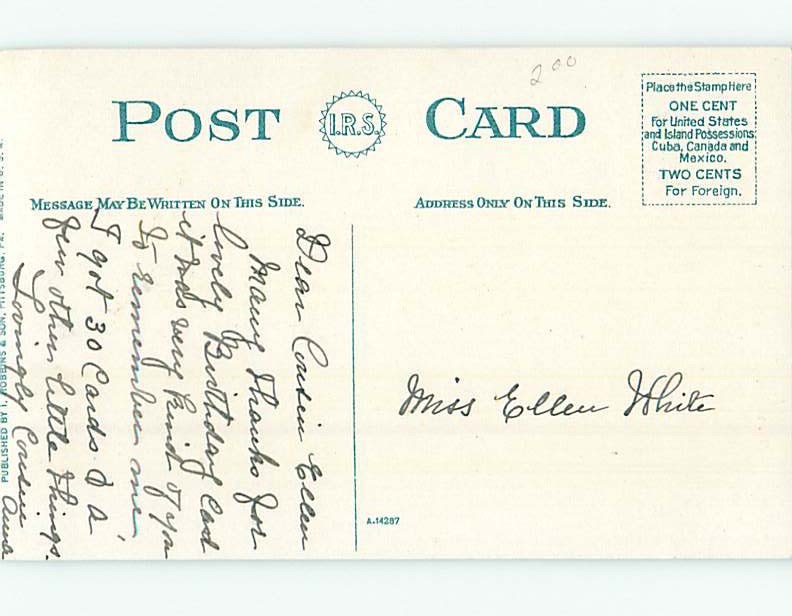 2.00
POST CARD
I.R.S.
Place the Stamp Here
ONE CENT
For United States
and Island Possessions
Cuba, Canada and
Mexico.
TWO CENTS
For Foreign.
MESSAGE MAY BE WRITTEN ON THIS SIDE.
ADDRESS ONLY ON THIS SIDE.
Dear Cousin Ellen
Many thanks for
lovely Birthday Card
it was very kind of you
to remember me,
I got 30 Cards & a
few other little things.
Lovingly Cousin
Anna
Miss Ellen White
A-14287
PUBLISHED BY I. ROBBINS & SON, PITTSBURG, PA. MADE IN U. S. A.